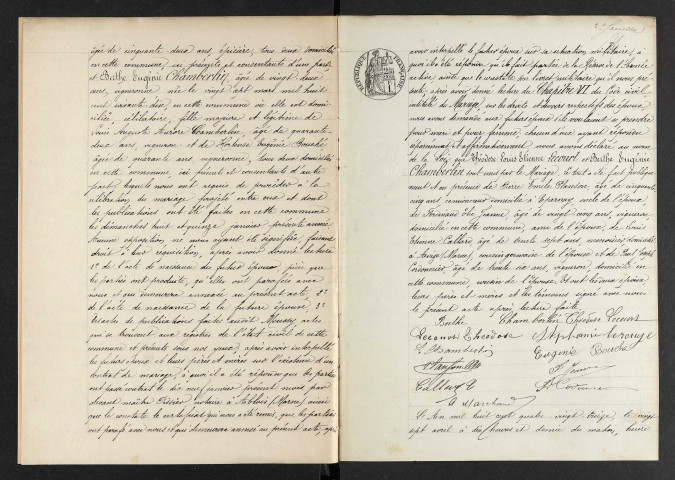 âgée de cinquante deux ans, épicière, tous deux domiciliés
en cette commune, ici présents et consentants d'une part
et Berthe Eugénie Chamberlin, âgée de vingt deux
ans, vigneronne, née le vingt sept mars mil huit
cent soixante dix, en cette commune où elle est domi-
ciliée, célibataire, fille majeure et légitime de
Louis Auguste Aurore Chamberlin, âgé de quarante
deux ans, vigneron et de Hortense Eugénie Bouché
âgée de quarante ans, vigneronne, tous deux domiciliés
en cette commune, ici présents et consentants d'autre
part. Lesquels nous ont requis de procéder à la
célébration du mariage projeté entre eux et dont
les publications ont été faites en cette commune
les dimanches huit et quinze janvier présente année
Aucune opposition, ne nous ayant été signifiée, faisant
droit à leur réquisition, après avoir donné lecture
1° de l'acte de naissance du futur époux, pièce que
les parties ont produite, qu'elles ont paraphée avec
nous et qui demeurera annexée au présent acte, 2°
de l'acte de naissance de la future épouse, 3°
des actes de publications faites audit Moussy, actes
qui se trouvent aux registres de l'état civil de cette
commune et présents sous nos yeux; après avoir interpellé
les futurs époux et leurs pères et mères sur l'existence d'un
contrat de mariage, à quoi il a été répondu que les parties
ont passé contrat le dix neuf janvier présent mois par
devant maître notaire à Ablois (Marne) ainsi
que le constate le certificat qui nous a été remis, que les parties
ont paraphé avec nous et qui demeurera annexé au présent acte, après
avoir interpellé le futur époux sur sa situation militaire, à
quoi il a été répondu qu'il fait partie de la Réserve de l'Armée
active ainsi que le constate son livret militaire qu'il nous pré-
sente; après avoir donné lecture du Chapitre VI du Code civil
intitulé du Mariage, sur les droits et devoirs respectifs des époux
nous avons demandé aux futurs époux s'ils voulaient se prendre
pour mari et pour femme; chacun d'eux ayant répondu
séparément et affirmativement, nous avons déclaré au nom
de la Loi, que Théodore Louis Etienne Lecourt et Berthe Eugénie
Chamberlin sont unis par le Mariage. Le tout a été fait publique-
ment et en présence de Pierre Emile, âgé de cinquante
cinq ans, domicilié à Epernay, oncle de l'époux,
de Jeanne, âgé de vingt cinq ans, vigneron
domicilié en cette commune, ami de l'époux, de Louis
Etienne Callard, âgé de trente sept ans, menuisier, domicilié
à (Marne), cousin germain de l'épouse et de Paul Joseph
âgé de trente ans, vigneron, domicilié en
cette commune, cousin de l'épouse. Et ont les deux époux
leurs pères et mères et les témoins signé avec nous
le présent acte après lecture faite.
Berthe Chamberlin
Lecourt Théodore
Eugénie Bouché
E. Marchand
L'an mil huit cent quatre vingt treize, le vingt
sept avril à dix heures et demie du matin, devant